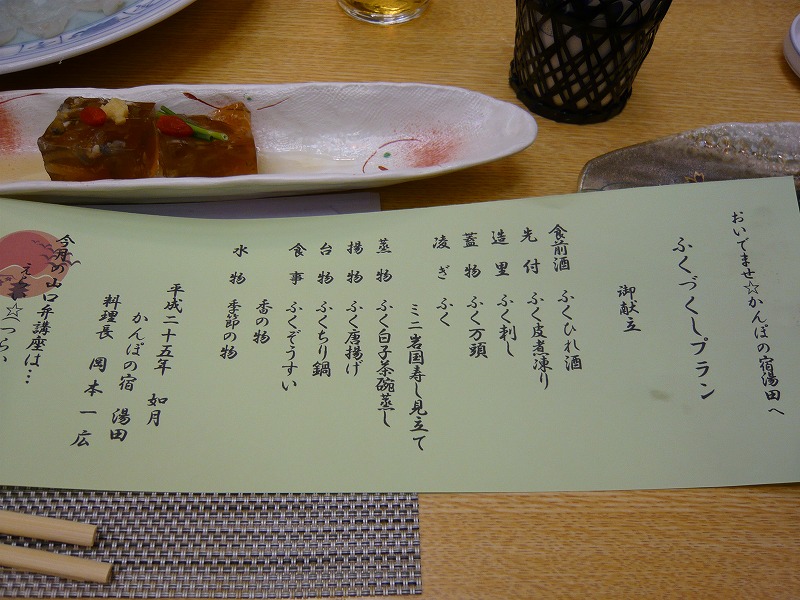 おいでませ☆かんぽの宿湯田へ
ふくづくしプラン
御献立
食前酒 ふくひれ酒
先付 ふく皮煮凍り
造里 ふく刺し
蓋物 ふく万頭
凌ぎ ふく
ミニ岩国寿し見立て
蒸物 ふく白子茶碗蒸し
揚物 ふく唐揚げ
台物 ふくちり鍋
食事 ふくぞうすい
香の物
水物 季節の物
平成二十五年 如月
かんぽの宿 湯田
料理長 岡本一広
今月の山口弁講座は…
☆(つらい